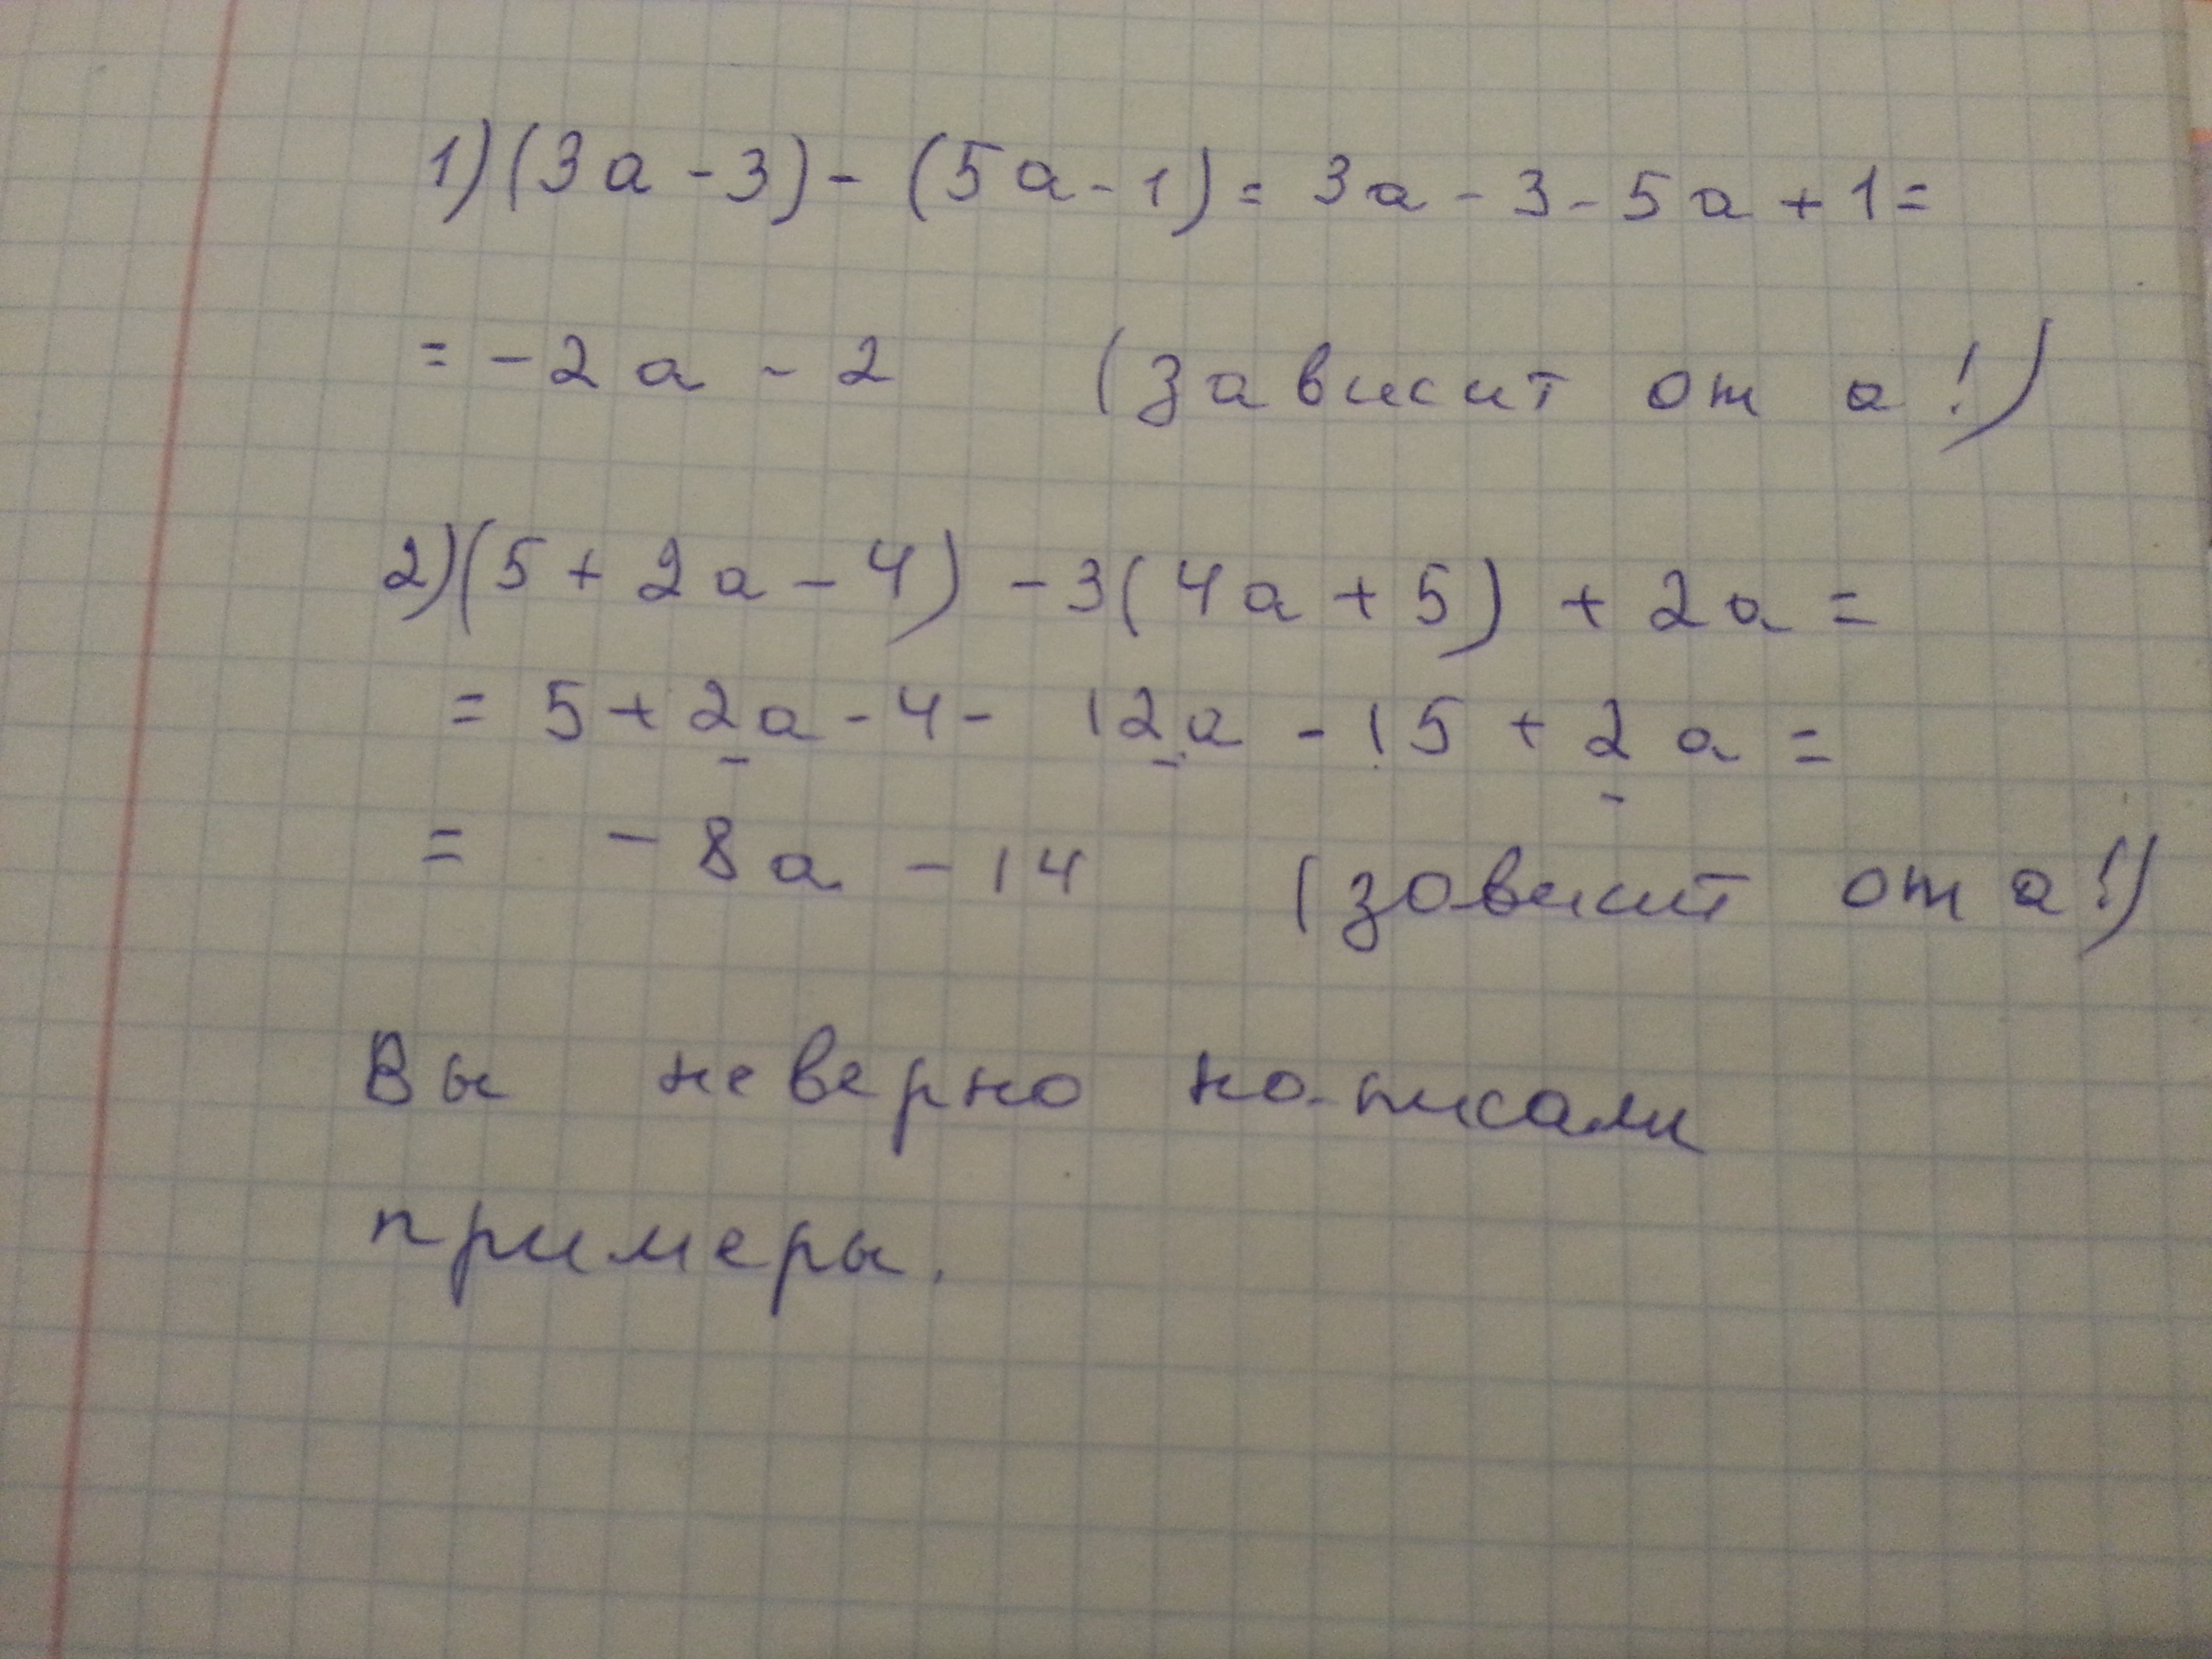 1) (3а - 3) - (5а - 1) = 3а - 3 - 5а + 1 =
= - 2а - 2 (зависит от а!)
2) (5 + 2а - 4) - 3(4а + 5) + 2а =
= 5 + 2а - 4 - 12а - 15 + 2а =
= - 8а - 14 (зависит от а!)
Вы неверно написали
примеры.